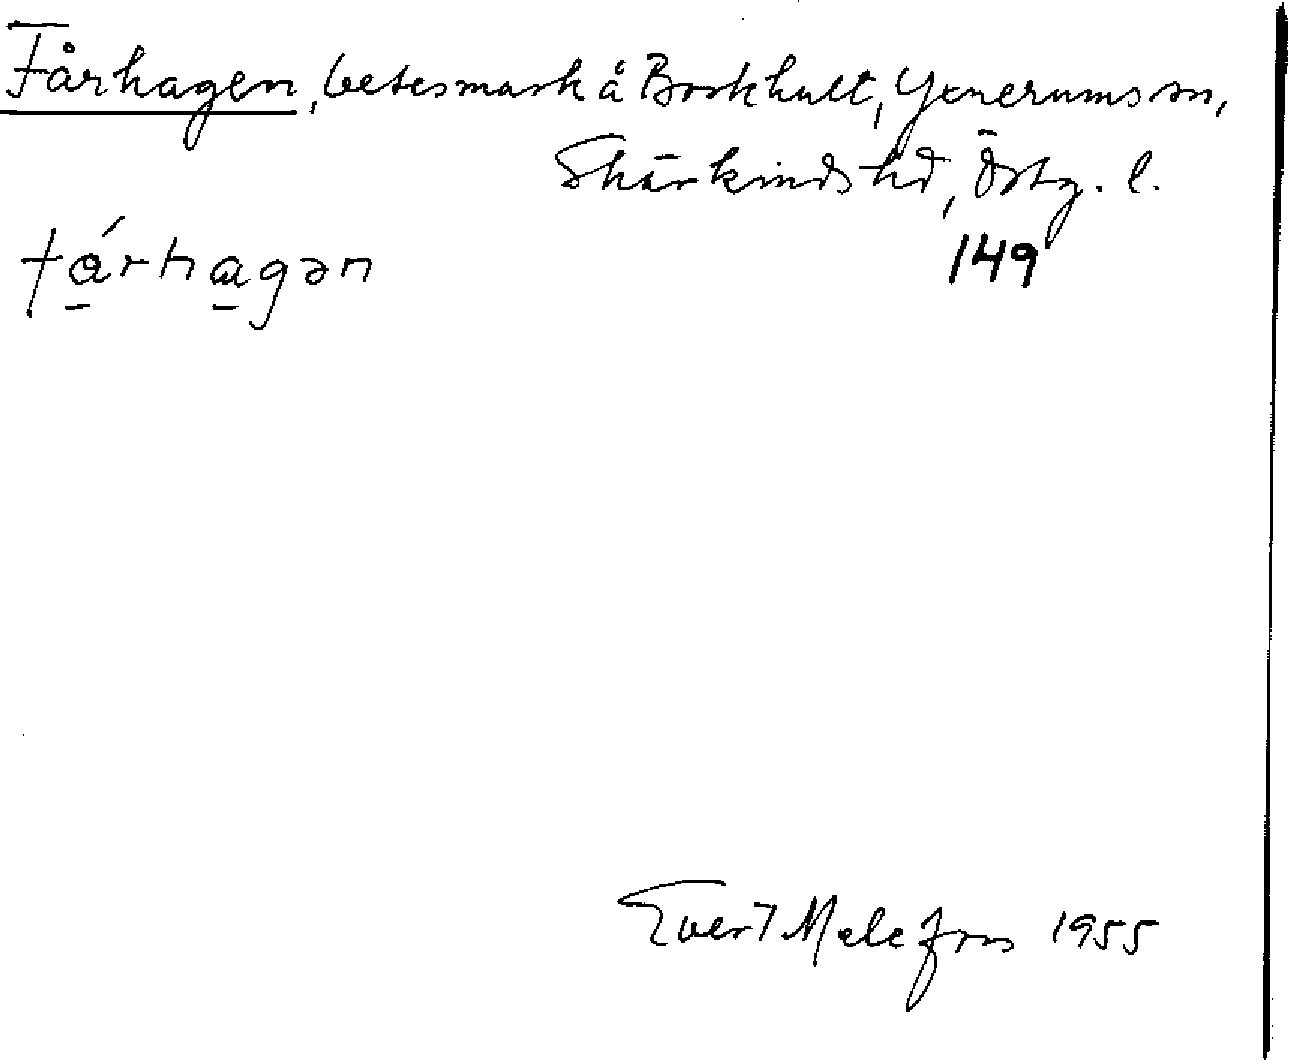 Fårhagen, betesmark å Borkhult, Yxnerums sn,
Skärkinds hd, Östg. l.
fårhagən 149
Evert Melefors 1955